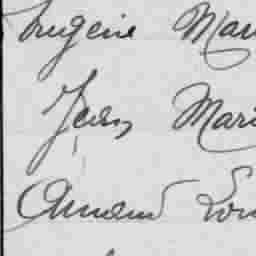 Eugène Mar
Jean Mari
Armand Lou